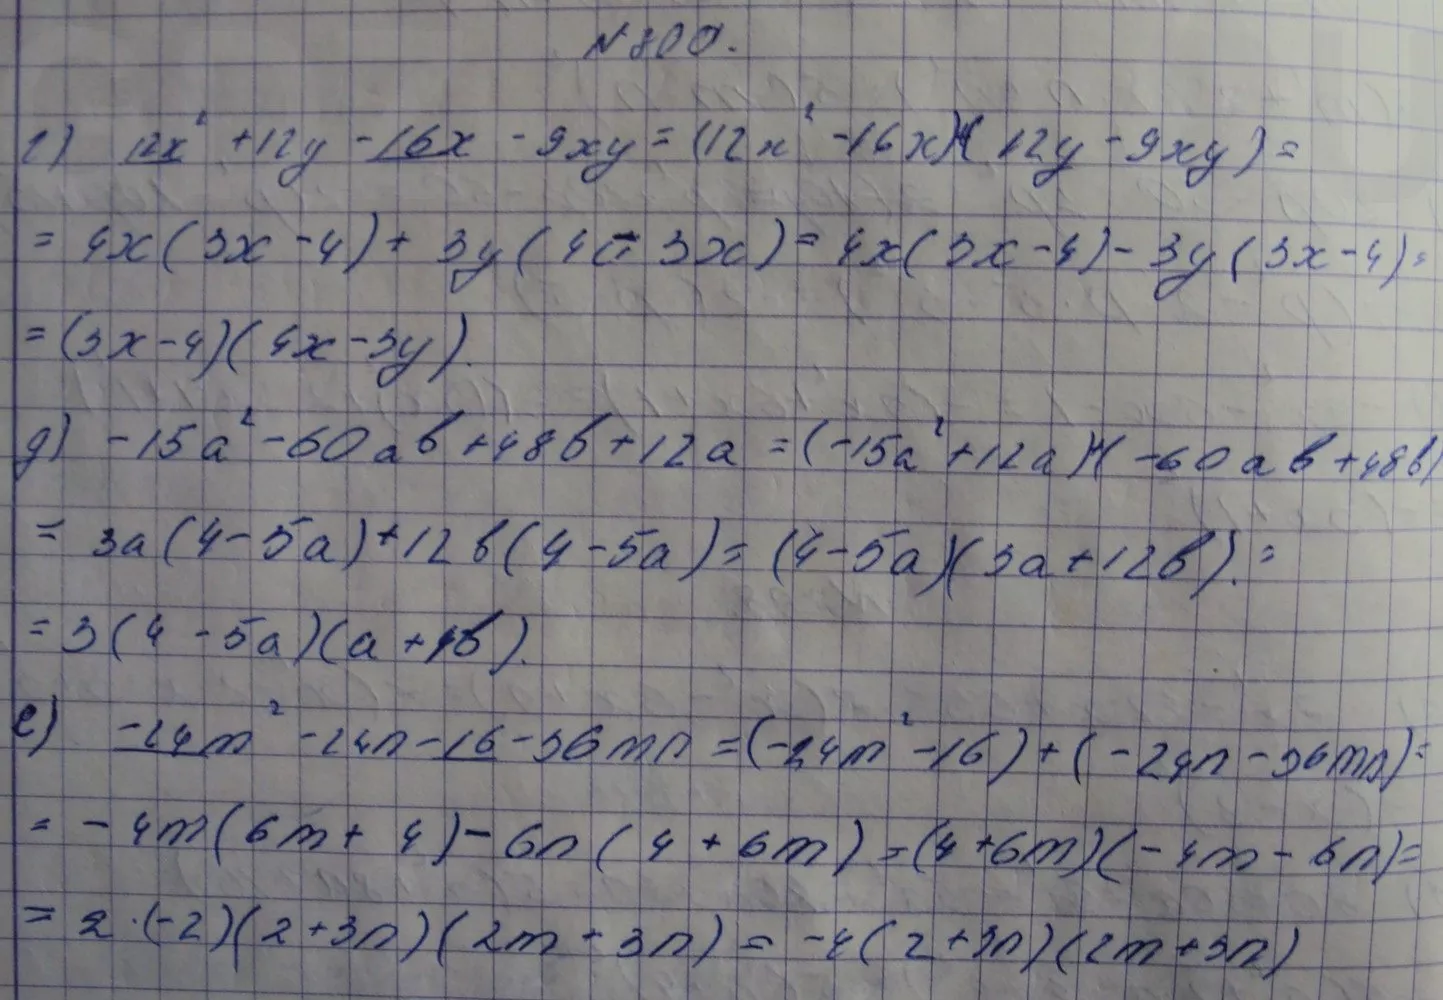 N 800.
г) 12x² +12y -16x -9xy = (12x² -16x)+(12y -9xy) =
= 4x(3x-4)+ 3y(4-3x)= 4x(3x-4)-3y(3x-4)=
= (3x-4)(4x-3y).
д) -15a² -60ab+48b+12a =(-15a²+12a)+(-60ab+48b)
= 3a(4-5a)+12b(4-5a)= (4-5a)(3a+12b).=
= 3(4-5a)(a+4b).
е) -24m² -24n-16-36mn =(-24m²-16)+(-24n-36mn)=
= -4m(6m+4)-6n(4+6m)=(4+6m)(-4m-6n)=
= 2·(-2)(2+3n)(2m+3n)= -4(2+3n)(2m+3n)